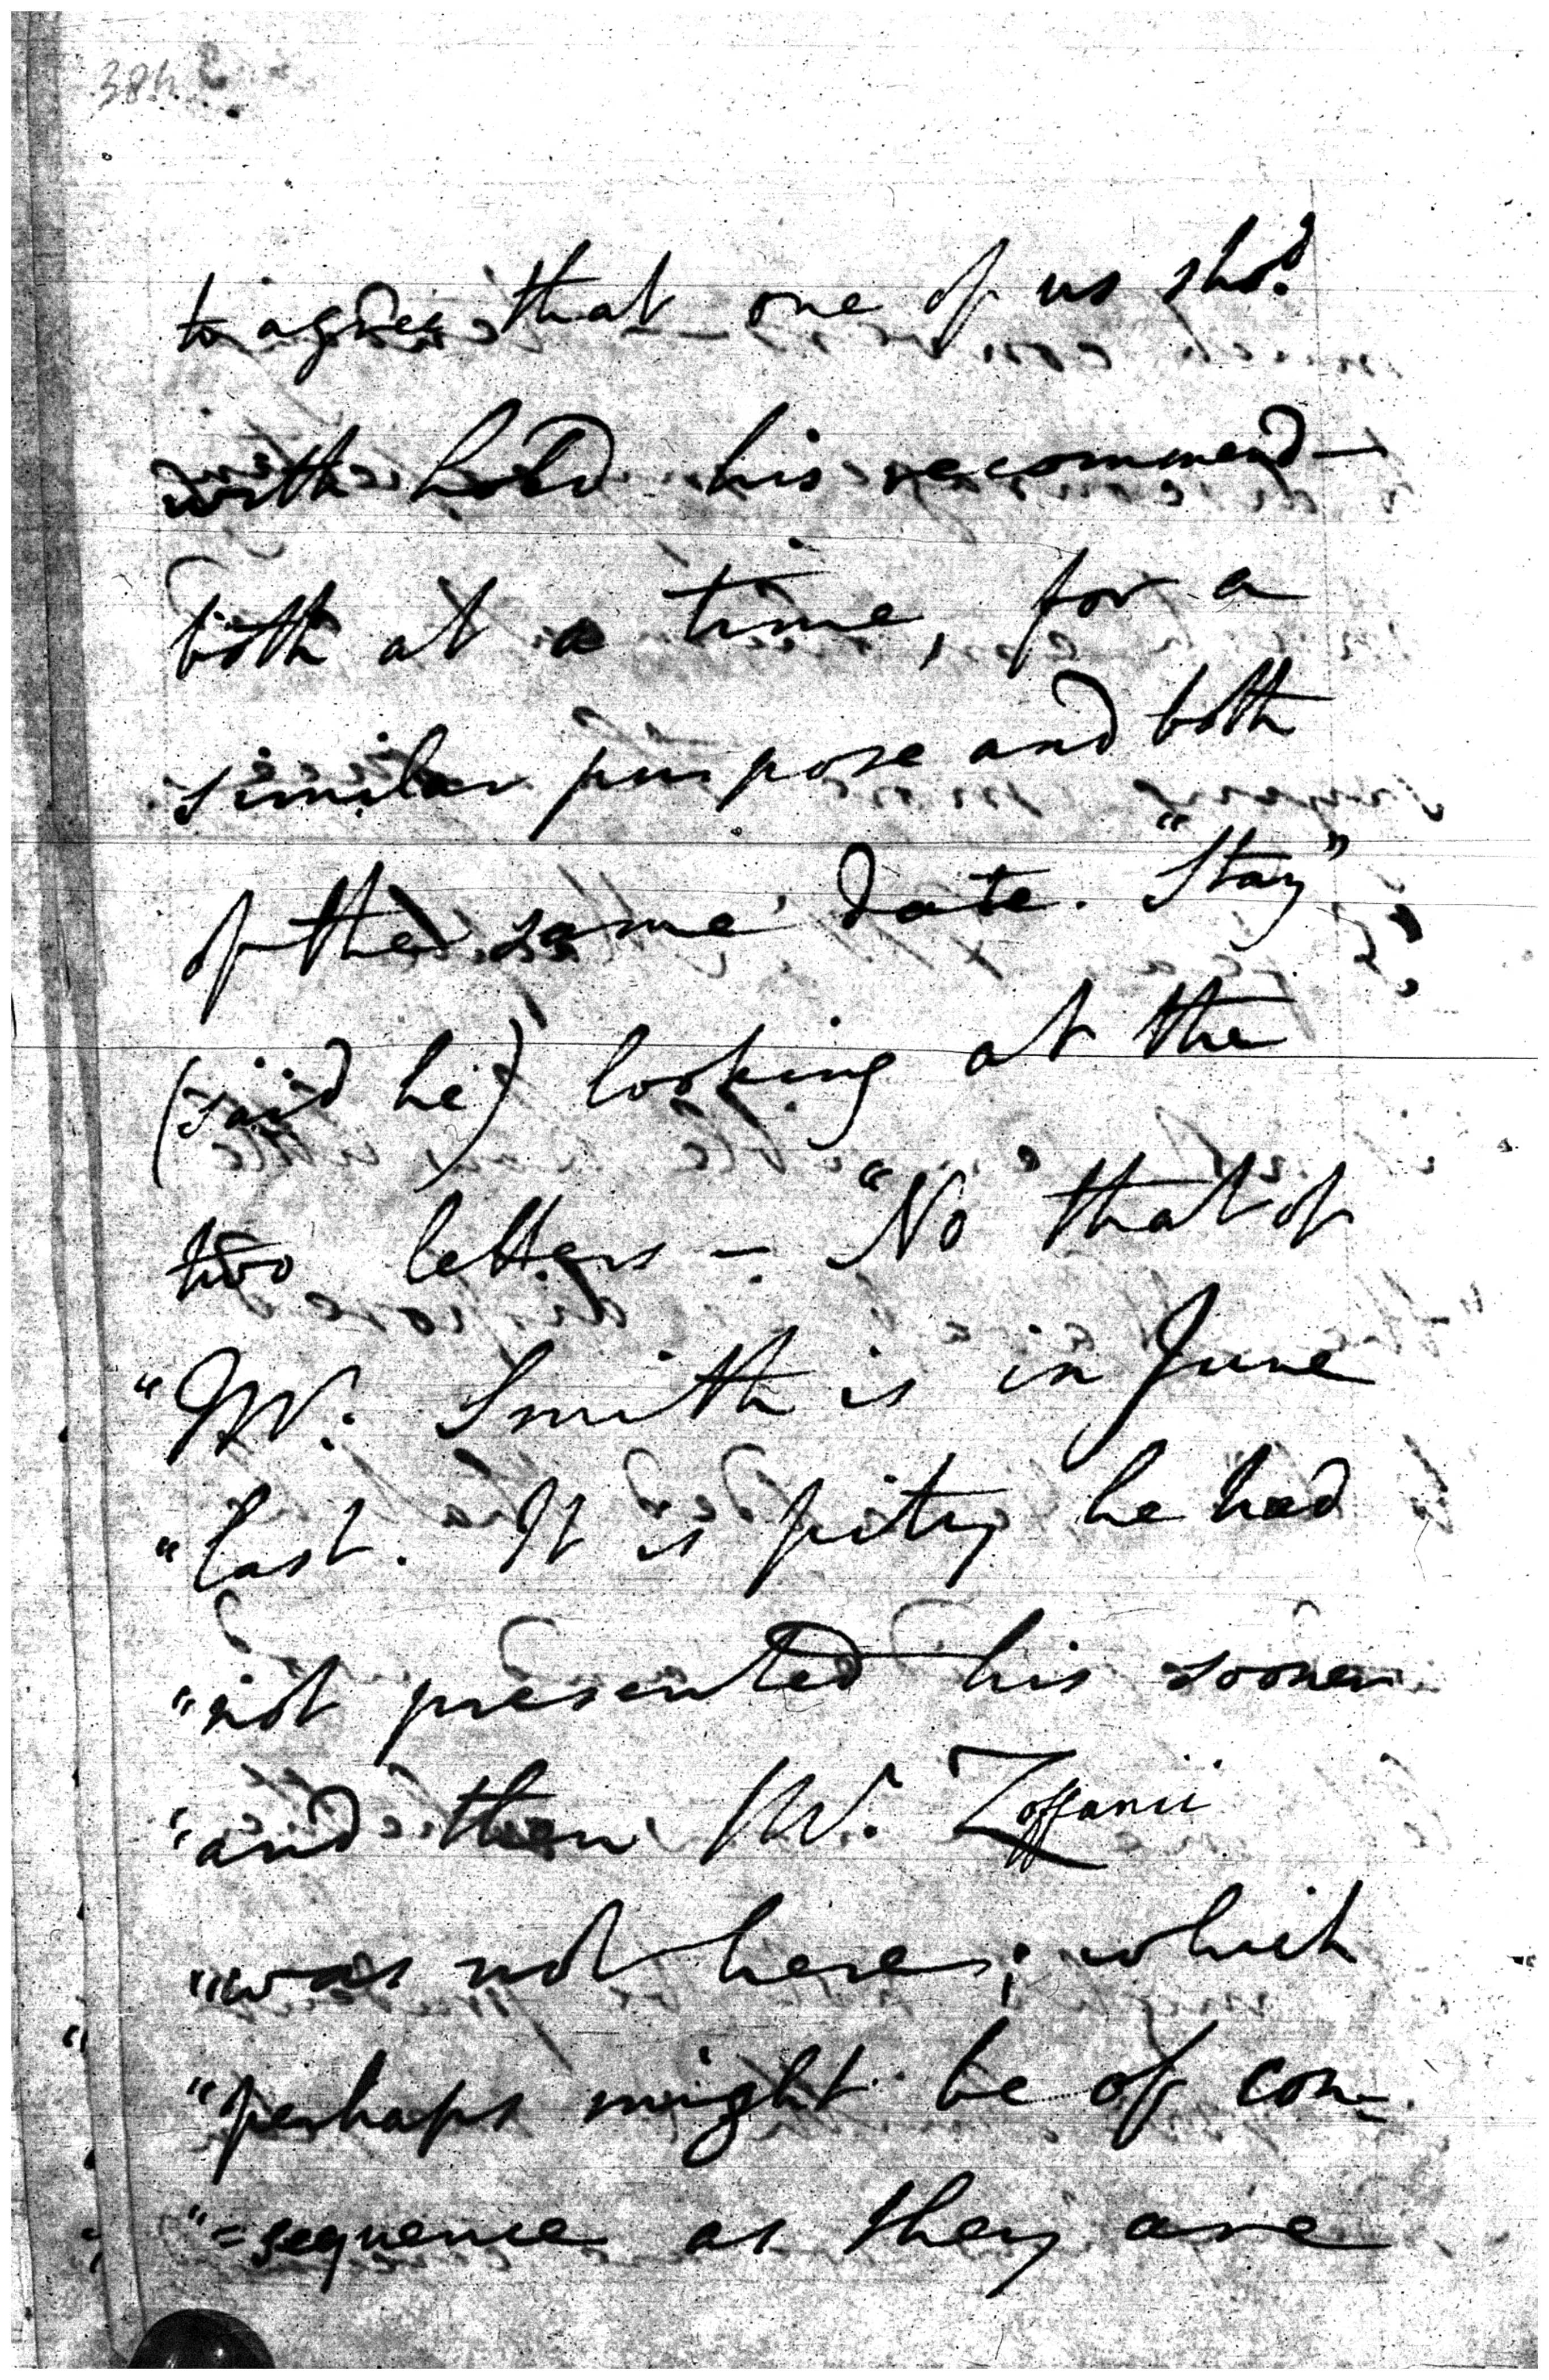 to agree that one of us sho.d
with hold his recommend—
both at a time, for a
similar purpose and both
of the same date. "Stay"
(said he) looking at the
two letters — "No that of
"Mr. Smith is in June
"last. It is pity he had
"not presented his sooner
"and then Mr. Zoffanii
"was not here; which
"perhaps might be of con=
"=sequence as they are